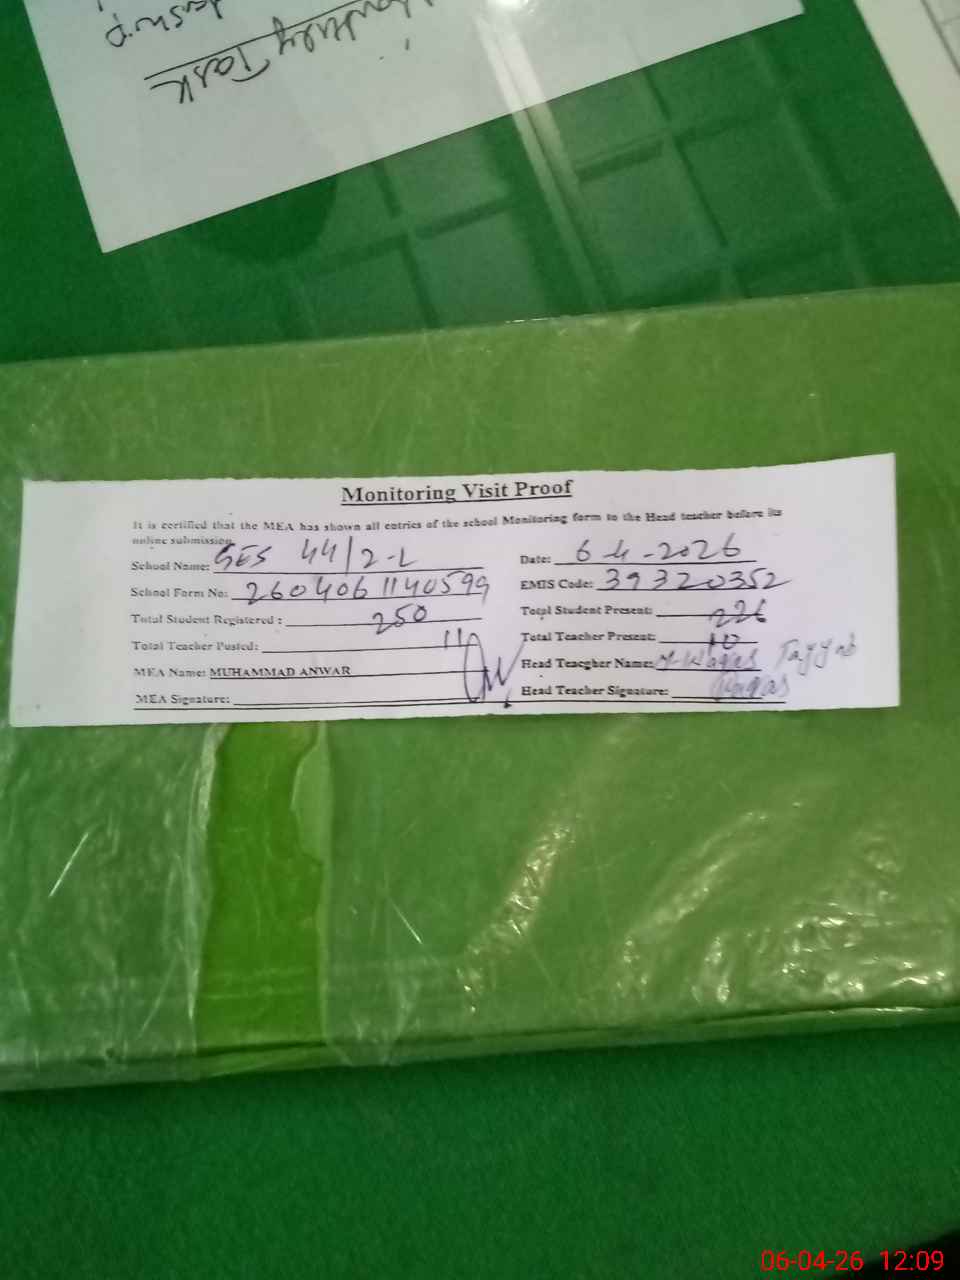 Task
Monitoring Visit Proof
It is certified that the MEA has shown all entries of the school Monitoring form to the Head teacher before its
online submission.
School Name: GES 44/2-L
Date: 6-4-2026
School Form No: 2604061140599
EMIS Code: 39320352
Total Student Registered : 250
Total Student Present: 226
Total Teacher Posted: 11
Total Teacher Present: 10
MEA Name: MUHAMMAD ANWAR
Head Teacgher Name: M-Waqas Tayyab
MEA Signature:
Head Teacher Signature: Waqas
06-04-26 12:09